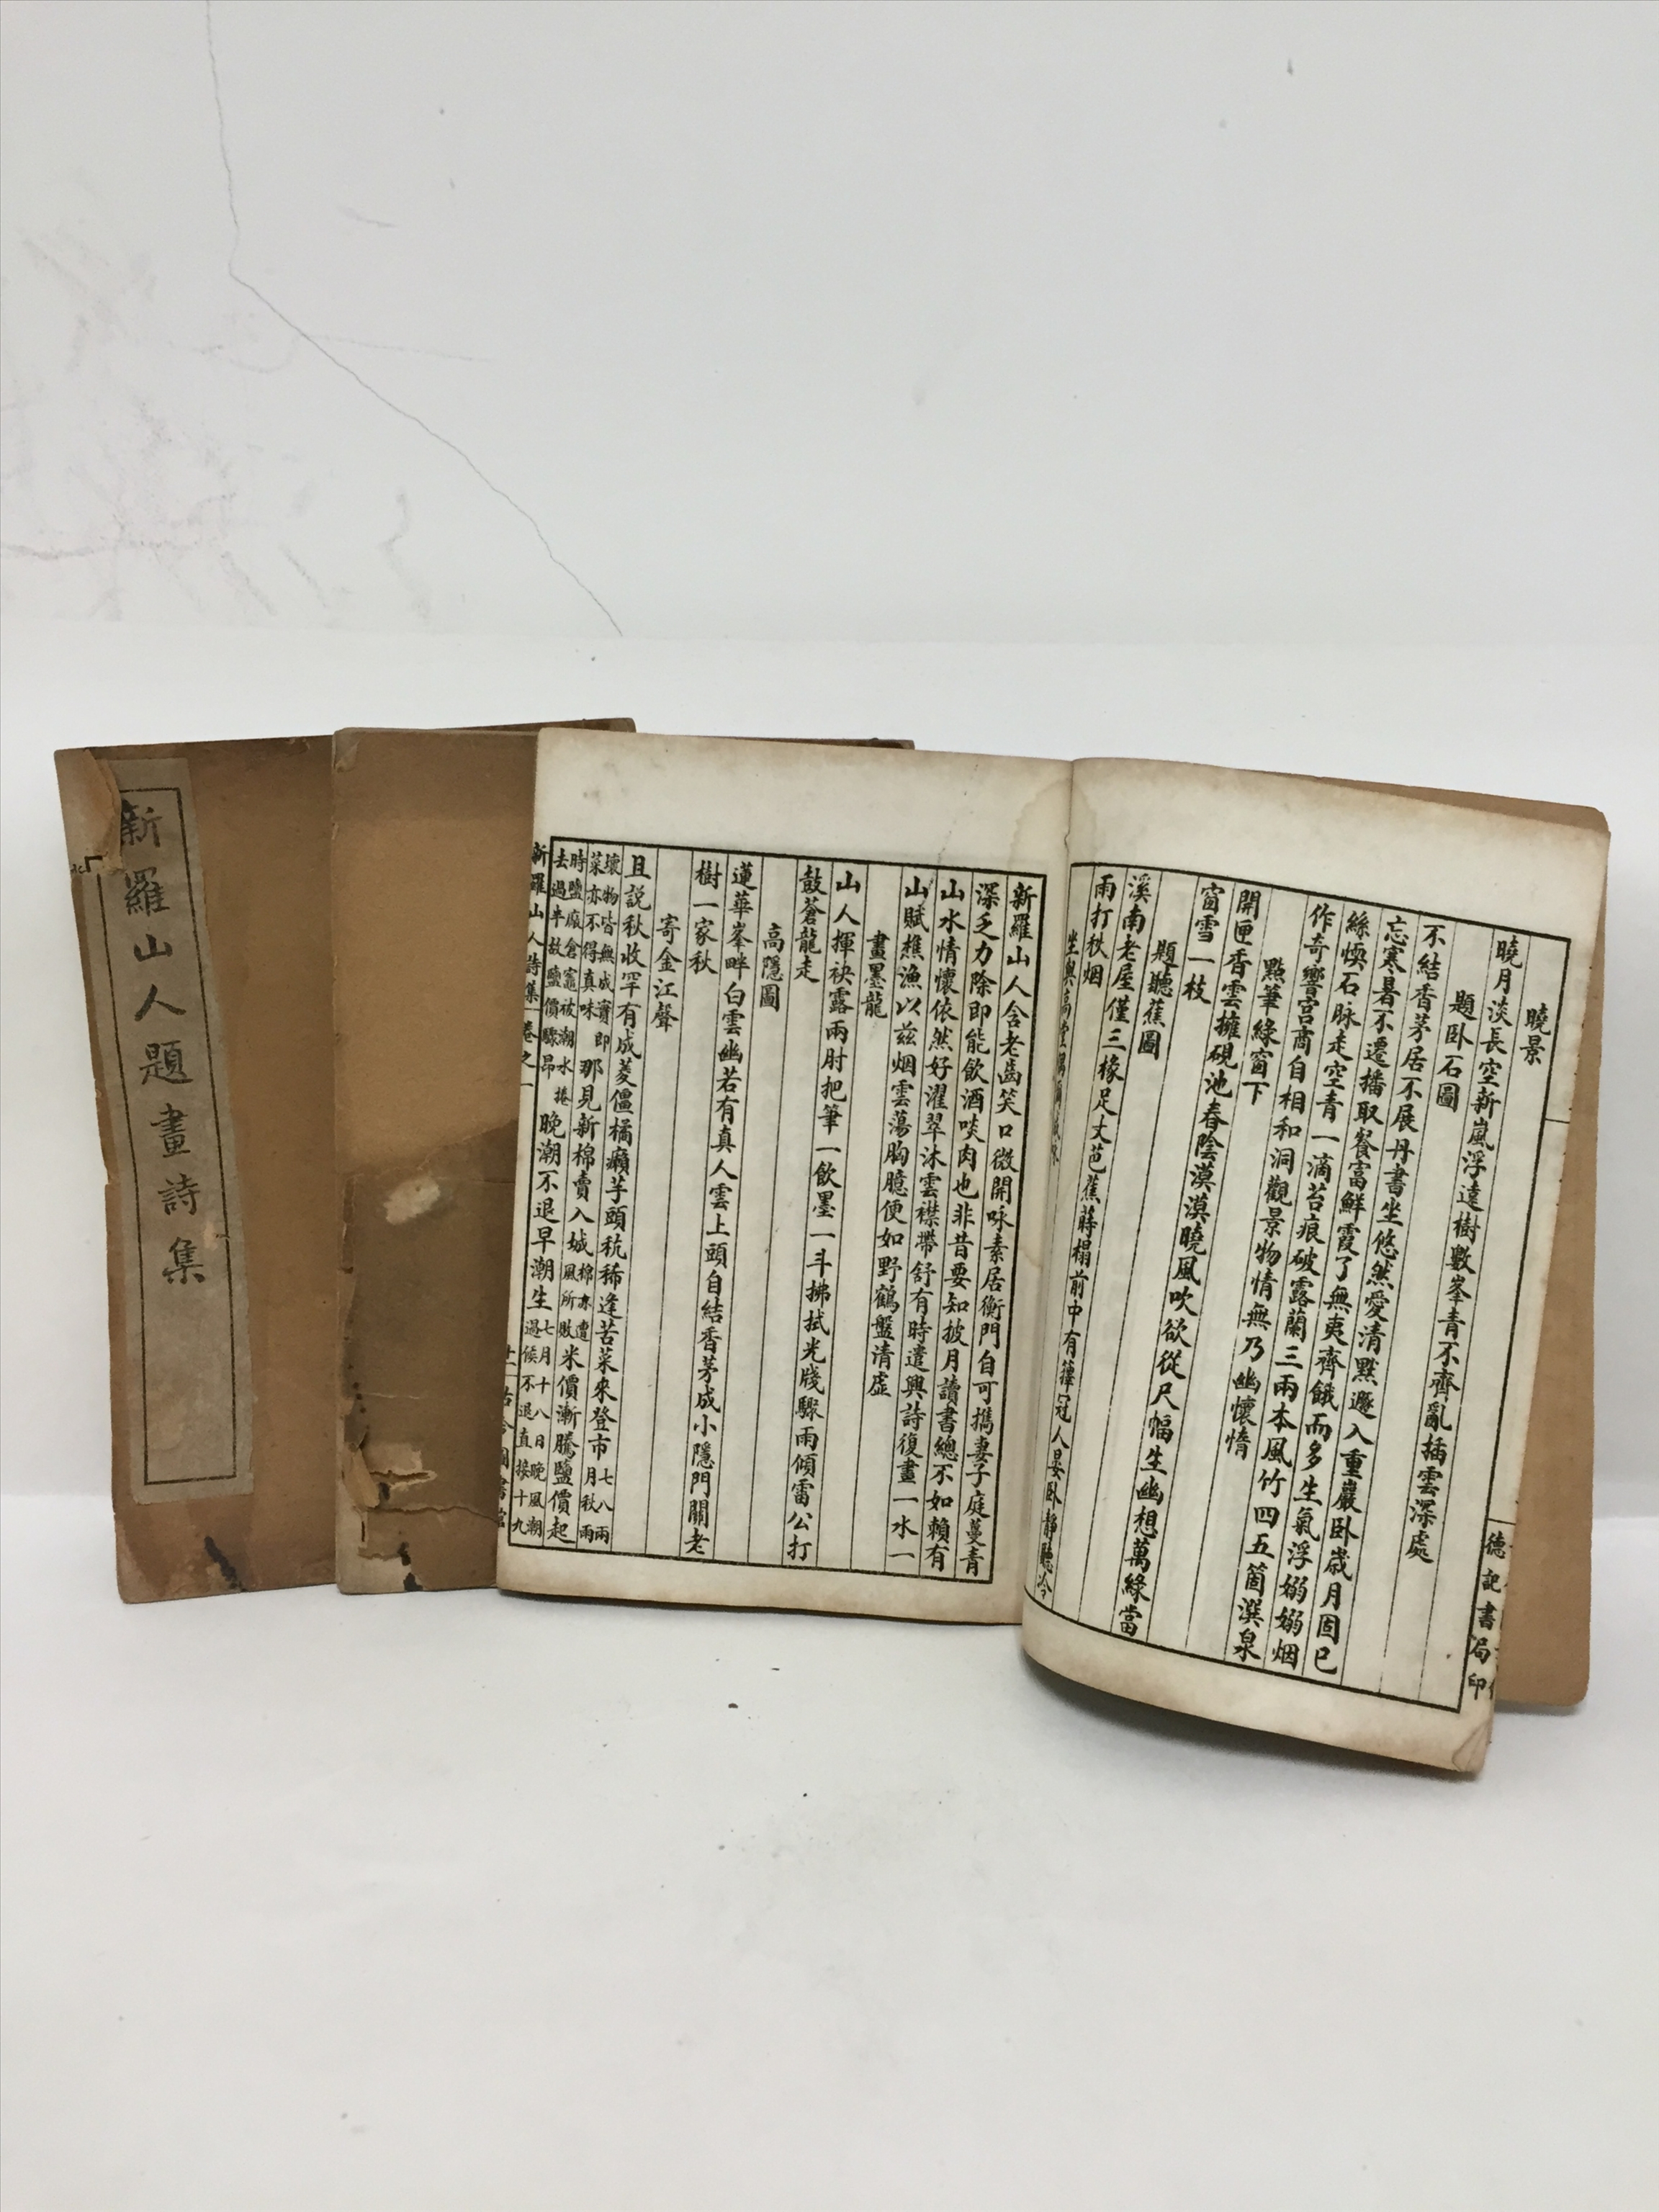 新羅山人題畫詩集
曉景
曉月淡長空新嵐浮遠樹數峯青不齊亂插雲深處
題卧石圖
不結香茅居不展丹書坐悠然愛清黙遯入重巖卧歲月固已
忘寒暑不遷播取餐富鮮霞了無夷齊餓而多生氣浮嫋嫋烟
絲愞石脉走空青一滴苔痕破露蘭三兩本風竹四五箇潠泉
作奇響宮商自相和洞觀景物情無乃幽懷惰
點筆綠窗下
開匣香雲擁硯池春陰漠漠曉風吹欲從尺幅生幽想萬綠當
窗雪一枝
題聽蕉圖
溪南老屋僅三椽足丈芭蕉蔣榻前中有籜冠人晏卧靜聽冷
雨打秋烟
德記書局印
新羅山人含老齒笑口微開咏素居衡門自可攜妻子庭蔓青
深乏力除即能飲酒啖肉也非昔要知披月讀書總不如賴有
山水情懷依然好濯翠沐雲襟帶舒有時遣興詩復畫一水一
山賦樵漁以兹烟雲蕩胸臆便如野鶴盤清虛
畫墨龍
山人揮袂露兩肘把筆一飲墨一斗拂拭光牋驟雨傾雷公打
鼓蒼龍走
高隱圖
蓮華峯畔白雲幽若有真人雲上頭自結香茅成小隱門關老
樹一家秋
寄金江聲
且説秋收罕有成菱僵橘癩芋頭秔稀逢苦菜來登市七八兩月秋雨
壞物皆無成實即菜亦不得真味那見新棉賣入城棉亦遭風所敗米價漸騰鹽價起
時鹽廠倉竈被潮水捲去過半故鹽價驟昂晚潮不退早潮生七月十八日晚風潮過候不退直接十九
新羅山人詩集卷之一
十一古今圖書館